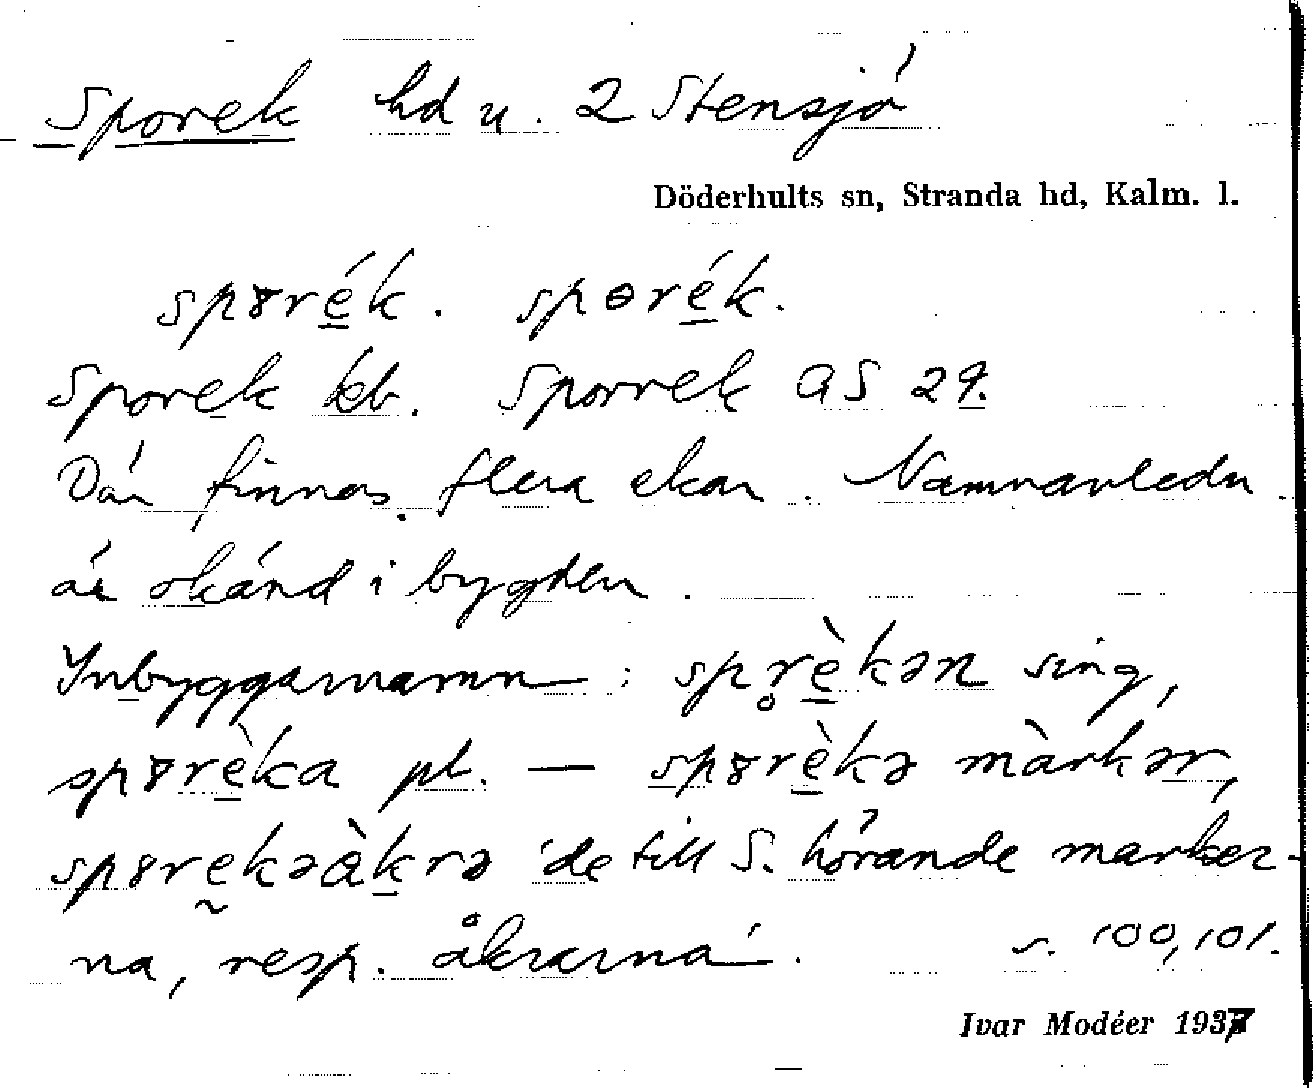 Sporek hd u. 2 Stensjö
Döderhults sn, Stranda hd, Kalm. l.
spɤrék. spɵrék.
Sporek kb. Sporrek GS 29.
Där finnas flera ekar. Namnavledn
är okänd i bygden.
Inbyggarnamn: spr̥èkən sing,
spɤrèka pl. — spɤrèkə màrkər,
spɤrekəàkrə 'de till S. hörande marker-
na, resp. åkrarna'. s. 100, 101.
Ivar Modéer 1937